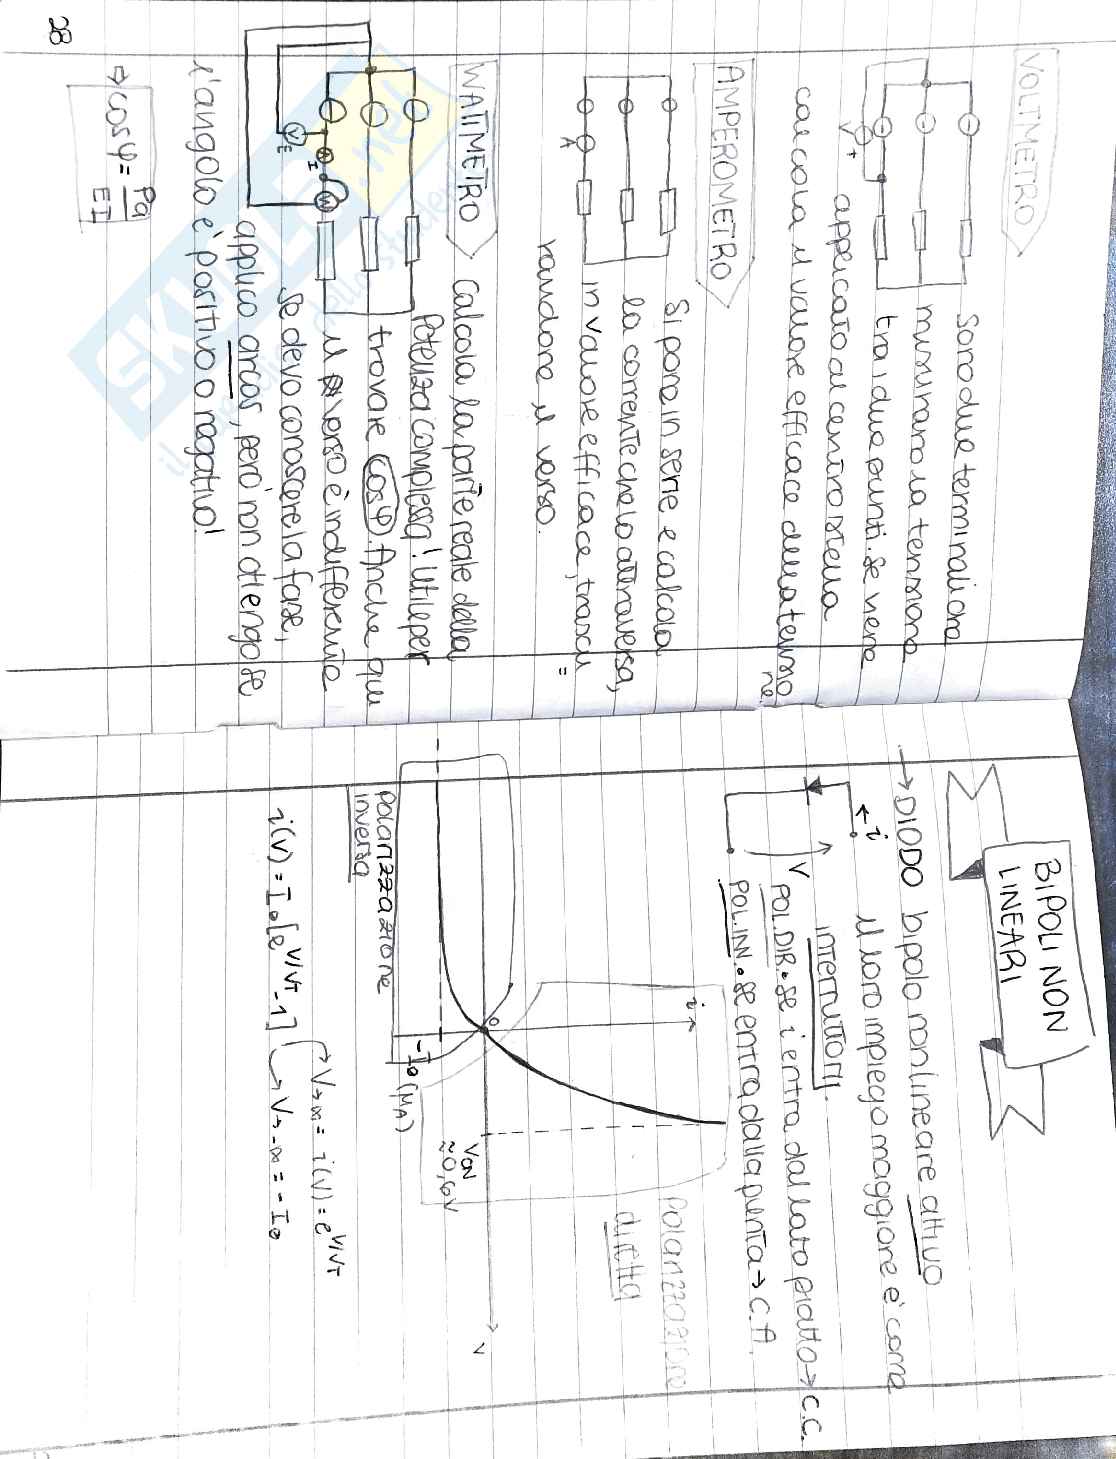 VOLTMETRO
Sono due terminali che
misurano la tensione
tra i due punti. Se viene
applicato al centro stella
calcola il valore efficace della tensio
ne.
V
+
AMPEROMETRO
Si pone in serie e calcola
la corrente che lo attraversa,
in valore efficace, trascu=
randone il verso.
A
WATTMETRO
Calcola la parte reale della
Potenza complessa! Utile per
trovare cosφ. Anche qui
il verso è indifferente
Se devo conoscere la fase,
applico arcos, però non ottengo se
l'angolo è positivo o negativo!
V
E
A
I
W
→ cosφ = Pa
EI
28
BIPOLI NON
LINEARI
→ DIODO bipolo non lineare attivo
Il loro impiego maggiore è come
interruttori.
POL.DIR. • se i entra dal lato piatto → C.C.
POL.INV. • se entra dalla punta → C.A.
← i
V
i
Polarizzazione
diretta
0
V
VON
≈ 0,6V
-I0 (μA)
Polarizzazione
inversa
i(V) = I0[e^V/VT -1]
V→∞ = i(V) = e^V/VT
V→-∞ = -I0
SKUOLA.net